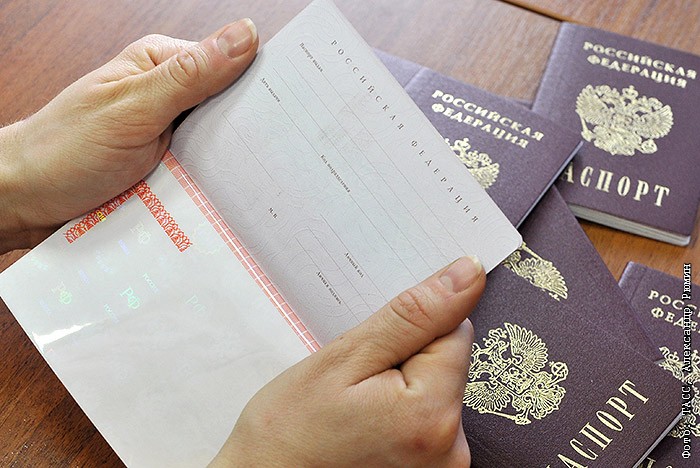 РОССИЙСКАЯ ФЕДЕРАЦИЯ
Паспорт выдан
Дата выдачи
Код подразделения
М. П.
Личный код
Личная подпись
РФ
РФ
РОССИЙСКАЯ
ФЕДЕРАЦИЯ
РОССИЙСКАЯ
ФЕДЕРАЦИЯ
ПАСПОРТ
ПАСПОРТ
РОССИ
ФЕД
Фото: ТАСС, Александр Рюмин